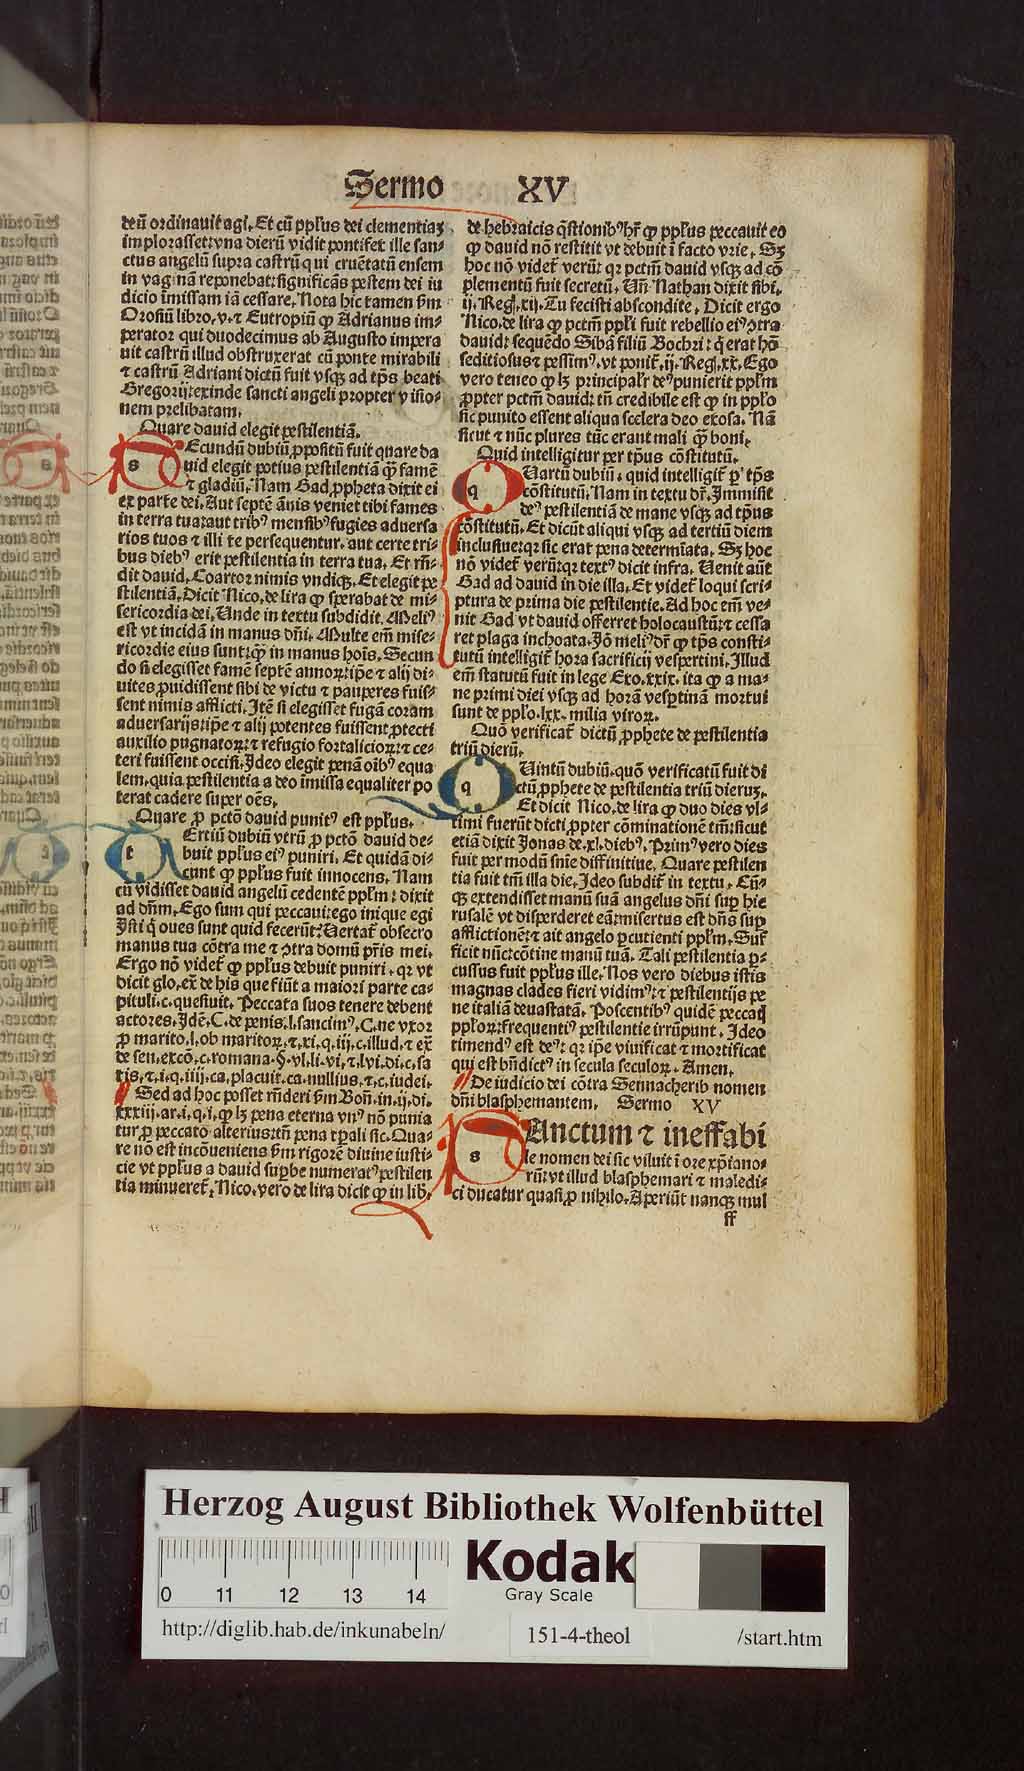 Sermo XV
deū ordinauit agi. Et cū pp̄lus dei clementiaȝ
implorasset: vna dierū vidit pontifex ille san⸗
ctus angelū supra castrū qui cruētatū ensem
in vaginā reponebat: significās pestem dei iu
dicio īmissam iā cessare. Nota hic tamen ẜm
Orosiū libro. v. ⁊ Eutropiū ꝙ Adrianus im⸗
perator qui duodecimus ab Augusto impera
uit castrū illud obstruxerat cū ponte mirabili
⁊ castrū Adriani dictū fuit vsqꝫ ad tp̄s beati
Gregorij: exinde sancti angeli propter visio⸗
nem prelibatam.
Quare dauid elegit pestilentiā.
sEcundū dubiū ꝓpositū fuit quare da
uid elegit potius pestilentiā ꝙ̄ famē
⁊ gladiū. Nam Gad ꝓpheta dixit ei
ex parte dei. Aut septē ānis veniet tibi fames
in terra tua: aut tribꝰ mensibꝰ fugies aduersa
rios tuos ⁊ illi te persequentur. aut certe tri⸗
bus diebꝰ erit pestilentia in terra tua. Et rn̄⸗
dit dauid. Coartor nimis vndiqꝫ. Et elegit pe
stilentiā. Dicit Nico. de lira ꝙ sperabat de mi⸗
sericordia dei. Unde in textu subdidit. Meliꝰ
est vt incidā in manus dn̄i. Multe em̄ mise⸗
ricordie eius sunt: ꝙ̄ in manus hoīs. Secun
do si elegisset famē septē annoꝝ: ip̄e ⁊ alij di⸗
uites ꝓuidissent sibi de victu ⁊ pauperes fuis⸗
sent nimis afflicti. Itē si elegisset fugā coram
aduersarijs: ip̄e ⁊ alij potentes fuissent ꝓtecti
auxilio pugnatoꝝ: ⁊ refugio fortalicioꝝ: ⁊ ce⸗
teri fuissent occisi. Ideo elegit penā oībꝰ equa
lem. quia pestilentia a deo īmissa equaliter po
terat cadere super oēs.
Quare ꝓ pctō dauid punitꝰ est pp̄lus.
tErtiū dubiū vtrū ꝓ pctō dauid de⸗
buit pp̄lus eiꝰ puniri. Et quidā di⸗
cunt ꝙ pp̄lus fuit innocens. Nam
cū vidisset dauid angelū cedentē pp̄lm: dixit
ad dn̄m. Ego sum qui peccaui: ego inique egi
Isti q̇ oues sunt quid fecerūt? Vertat̄ obsecro
manus tua cōtra me ⁊ ↄtra domū pr̄is mei.
Ergo nō videt̄ ꝙ pp̄lus debuit puniri. qꝛ vt
dicit glo. ex de his que fiūt a maiori parte ca⸗
pituli. c. quesiuit. Peccata suos tenere debent
actores. Idē. C. de penis. l. sancimꝰ. C. ne vxor
ꝓ marito. l. ob maritoꝝ. ⁊. xi. q. iij. c. illud. ⁊ ex̄
de sen. excō. c. romana. §. vl. li. vi. ⁊. lvi. di. c. sa
tis. ⁊. i. q. iiij. ca. placuit. ca. nullius. ⁊. c. iudei.
Sed ad hoc posset rn̄deri ẜm Bon̄. in. ij. di.
xxxiij. ar. i. q. i. ꝙ lꝫ pena eterna vnꝰ nō punia
tur ꝓ peccato alterius: tn̄ pena tꝑali sic. Qua⸗
re nō est incōueniens ẜm rigorē diuine iusti⸗
cie vt pp̄lus a dauid suꝑbe numeratꝰ pestilen
tia minueret̄. Nico. vero de lira dicit ꝙ in lib.
de hebraicis q̄stionibꝰ hr̄ ꝙ pp̄lus peccauit eo
ꝙ dauid nō restitit vt debuit ī facto vrie. Sꝫ
hoc nō videt̄ verū: qꝛ pctm̄ dauid vsqꝫ ad cō
plementū fuit secretū. Un̄ Nathan dixit sibi.
ij. Reg. xij. Tu fecisti abscondite. Dicit ergo
Nico. de lira ꝙ pctm̄ pp̄li fuit rebellio eiꝰ ↄtra
dauid: sequēdo Sibā filiū Bochri: q̇ erat hō
seditiosus ⁊ pessimꝰ. vt ponit̄. ij. Reg. xx. Ego
vero teneo ꝙ lꝫ principalr̄ deꝰ punierit pp̄lm
ꝓpter pctm̄ dauid: tn̄ credibile est ꝙ in pp̄lo
sic punito essent aliqua scelera deo exosa. Nā
sicut ⁊ nūc plures tūc erant mali ꝙ̄ boni.
Quid intelligitur per tp̄us cōstitutū.
qUartū dubiū. quid intelligit̄ ꝑ tp̄s
cōstitutū. Nam in textu dr̄. Immisit
deꝰ pestilentiā de mane vsqꝫ ad tp̄us
cōstitutū. Et dicūt aliqui vsqꝫ ad tertiū diem
inclusiue: qꝛ sic erat pena determīata. Sꝫ hoc
nō videt̄ verū: qꝛ textꝰ dicit infra. Uenit aūt
Gad ad dauid in die illa. Et videt̄ loqui scri⸗
ptura de prima die pestilentie. Ad hoc em̄ ve⸗
nit Gad vt dauid offerret holocaustū: ⁊ cessa
ret plaga inchoata. Iō meliꝰ dr̄ ꝙ tp̄s consti⸗
tutū intelligit̄ hora sacrificij vespertini. Illud
em̄ statutū fuit in lege Exo. xxix. ita ꝙ a ma⸗
ne primi diei vsqꝫ ad horā vesꝑtinā mortui
sunt de pp̄lo. lxx. milia viroꝝ.
Quō verificat̄ dictū ꝓphete de pestilentia
triū dierū.
qUintū dubiū. quō verificatū fuit di
ctū ꝓphete de pestilentia triū dieruꝫ.
Et dicit Nico. de lira ꝙ duo dies vl⸗
timi fuerūt dicti ꝓpter cōminationē tm̄: sicut
etiā dixit Jonas de. xl. diebꝰ. Primꝰ vero dies
fuit per modū sn̄ie diffinitiue. Quare pestilen
tia fuit tm̄ illa die. Ideo subdit̄ in textu. Cū⸗
qꝫ extendisset manū suā angelus dn̄i suꝑ hie
rusalē vt disperderet eā: misertus est dn̄s suꝑ
afflictionē: ⁊ ait angelo ꝑcutienti pp̄lm. Suf̄
ficit nūc: cōtine manū tuā. Tali pestilentia ꝑ⸗
cussus fuit pp̄lus ille. Nos vero diebus istis
magnas clades fieri vidimꝰ: ⁊ pestilentijs pe
ne italiā deuastatā. Poscentibꝰ quidē peccatꝭ
pp̄loꝝ: frequentiꝰ pestilentie irrūpunt. Ideo
timendꝰ est deꝰ: qꝛ ip̄e viuificat ⁊ mortificat
qui est bn̄dictꝰ in secula seculoꝝ. Amen.
De iudicio dei cōtra Sennacherib nomen
dn̄i blasphemantem. Sermo XV
sAnctum ⁊ ineffabi
le nomen dei sic viluit ī ore xp̄iano⸗
rū: vt illud blasphemari ⁊ maledi⸗
ci ducatur quasi ꝓ nihilo. Aperiūt nanqꝫ mul
ff
Herzog August Bibliothek Wolfenbüttel
0 11 12 13 14
Kodak
Gray Scale
http://diglib.hab.de/inkunabeln/
151-4-theol
/start.htm